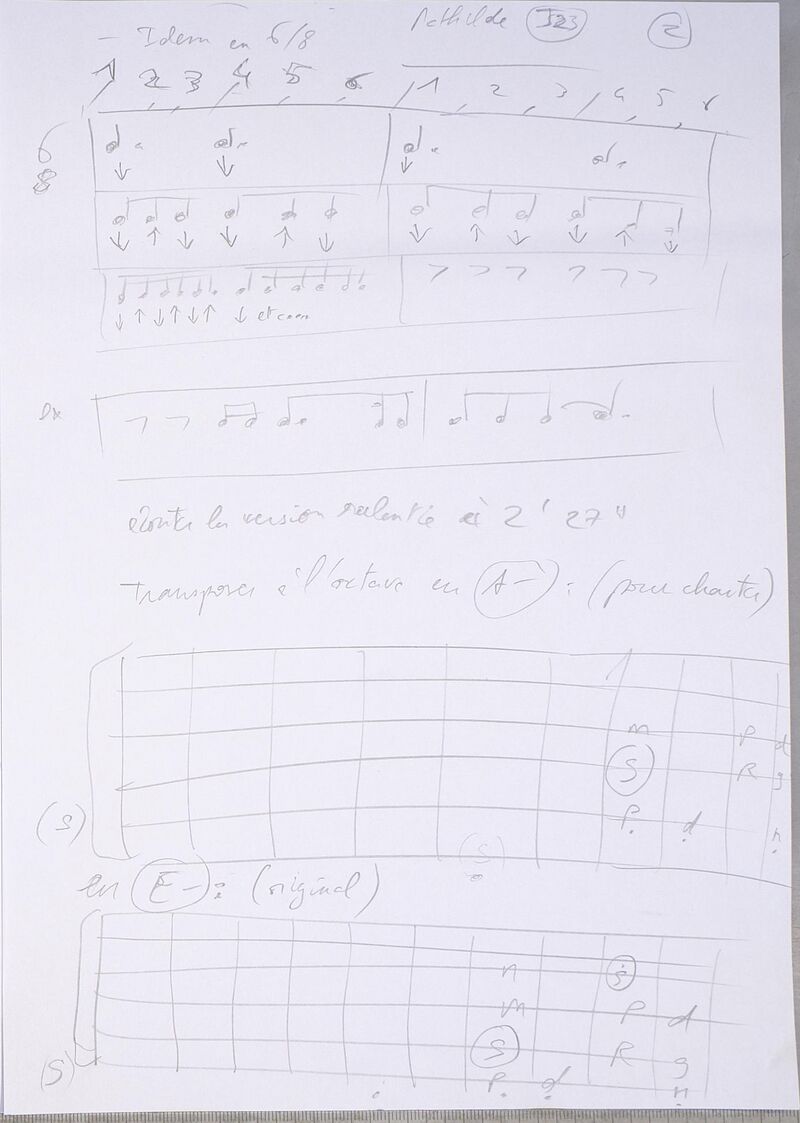 - Idem en 6/8 Mathilde J23 2
1 2 3 4 5 6 1 2 3 4 5 6
6
8
et coen
Ex
écoute la version ralentie à 2' 27"
transposer à l'octave en A- : (pour chanter)
m P d
S R g
(S) P d n
(S)
en E- : (original)
n s
m P d
S R g
(S) P d n